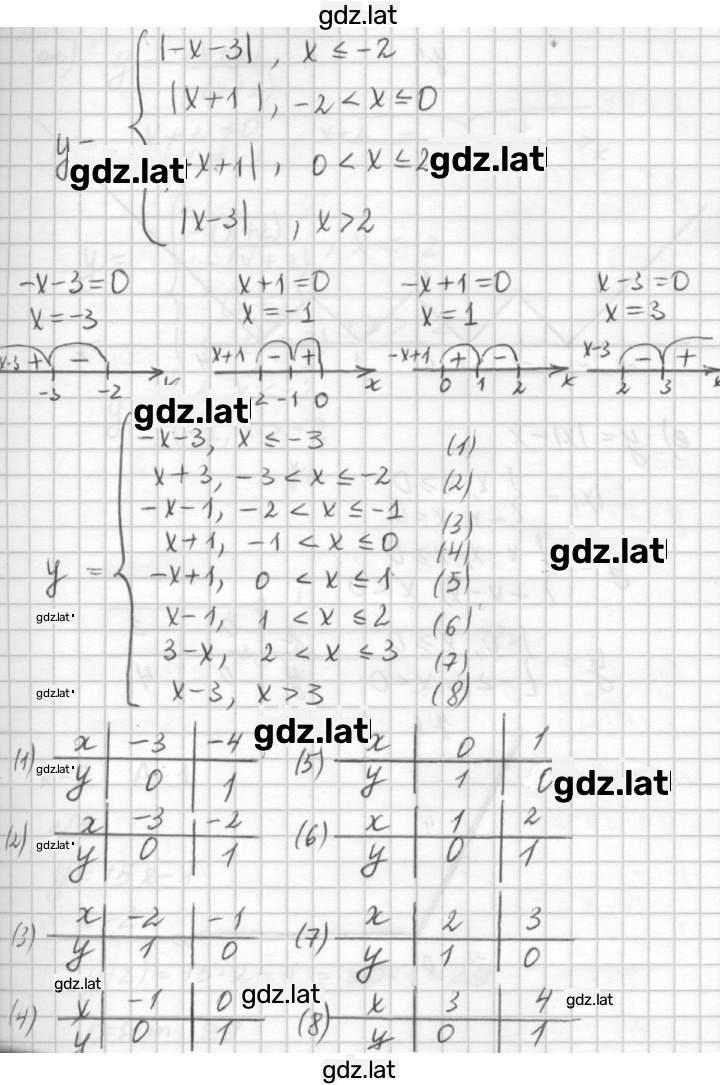 gdz.lat
|-x-3|, x ≤ -2
|x+1|, -2 < x ≤ 0
y=
gdz.lat x+1|, 0 < x ≤ 2 gdz.lat
|x-3|, x>2
-x-3=0 x+1=0 -x+1=0 x-3=0
x=-3 x=-1 x=1 x=3
x-3 + - x+1 - + -x+1 + - x-3 - +
-3 -2 x 2 -1 0 x 0 1 2 x 2 3 x
gdz.lat
-x-3, x ≤ -3 (1)
x+3, -3 < x ≤ -2 (2)
-x-1, -2 < x ≤ -1 (3)
x+1, -1 < x ≤ 0 (4) gdz.lat
y = -x+1, 0 < x ≤ 1 (5)
gdz.lat x-1, 1 < x ≤ 2 (6)
3-x, 2 < x ≤ 3 (7)
gdz.lat x-3, x>3 (8)
gdz.lat
(1) x -3 -4 (5) x 0 1
gdz.lat y 0 1 y 1 0 gdz.lat
(2) x -3 -2 (6) x 1 2
gdz.lat y 0 1 y 0 1
(3) x -2 -1 (7) x 2 3
y 1 0 y 1 0
gdz.lat gdz.lat gdz.lat
(4) x -1 0 (8) x 3 4
y 0 1 y 0 1
gdz.lat